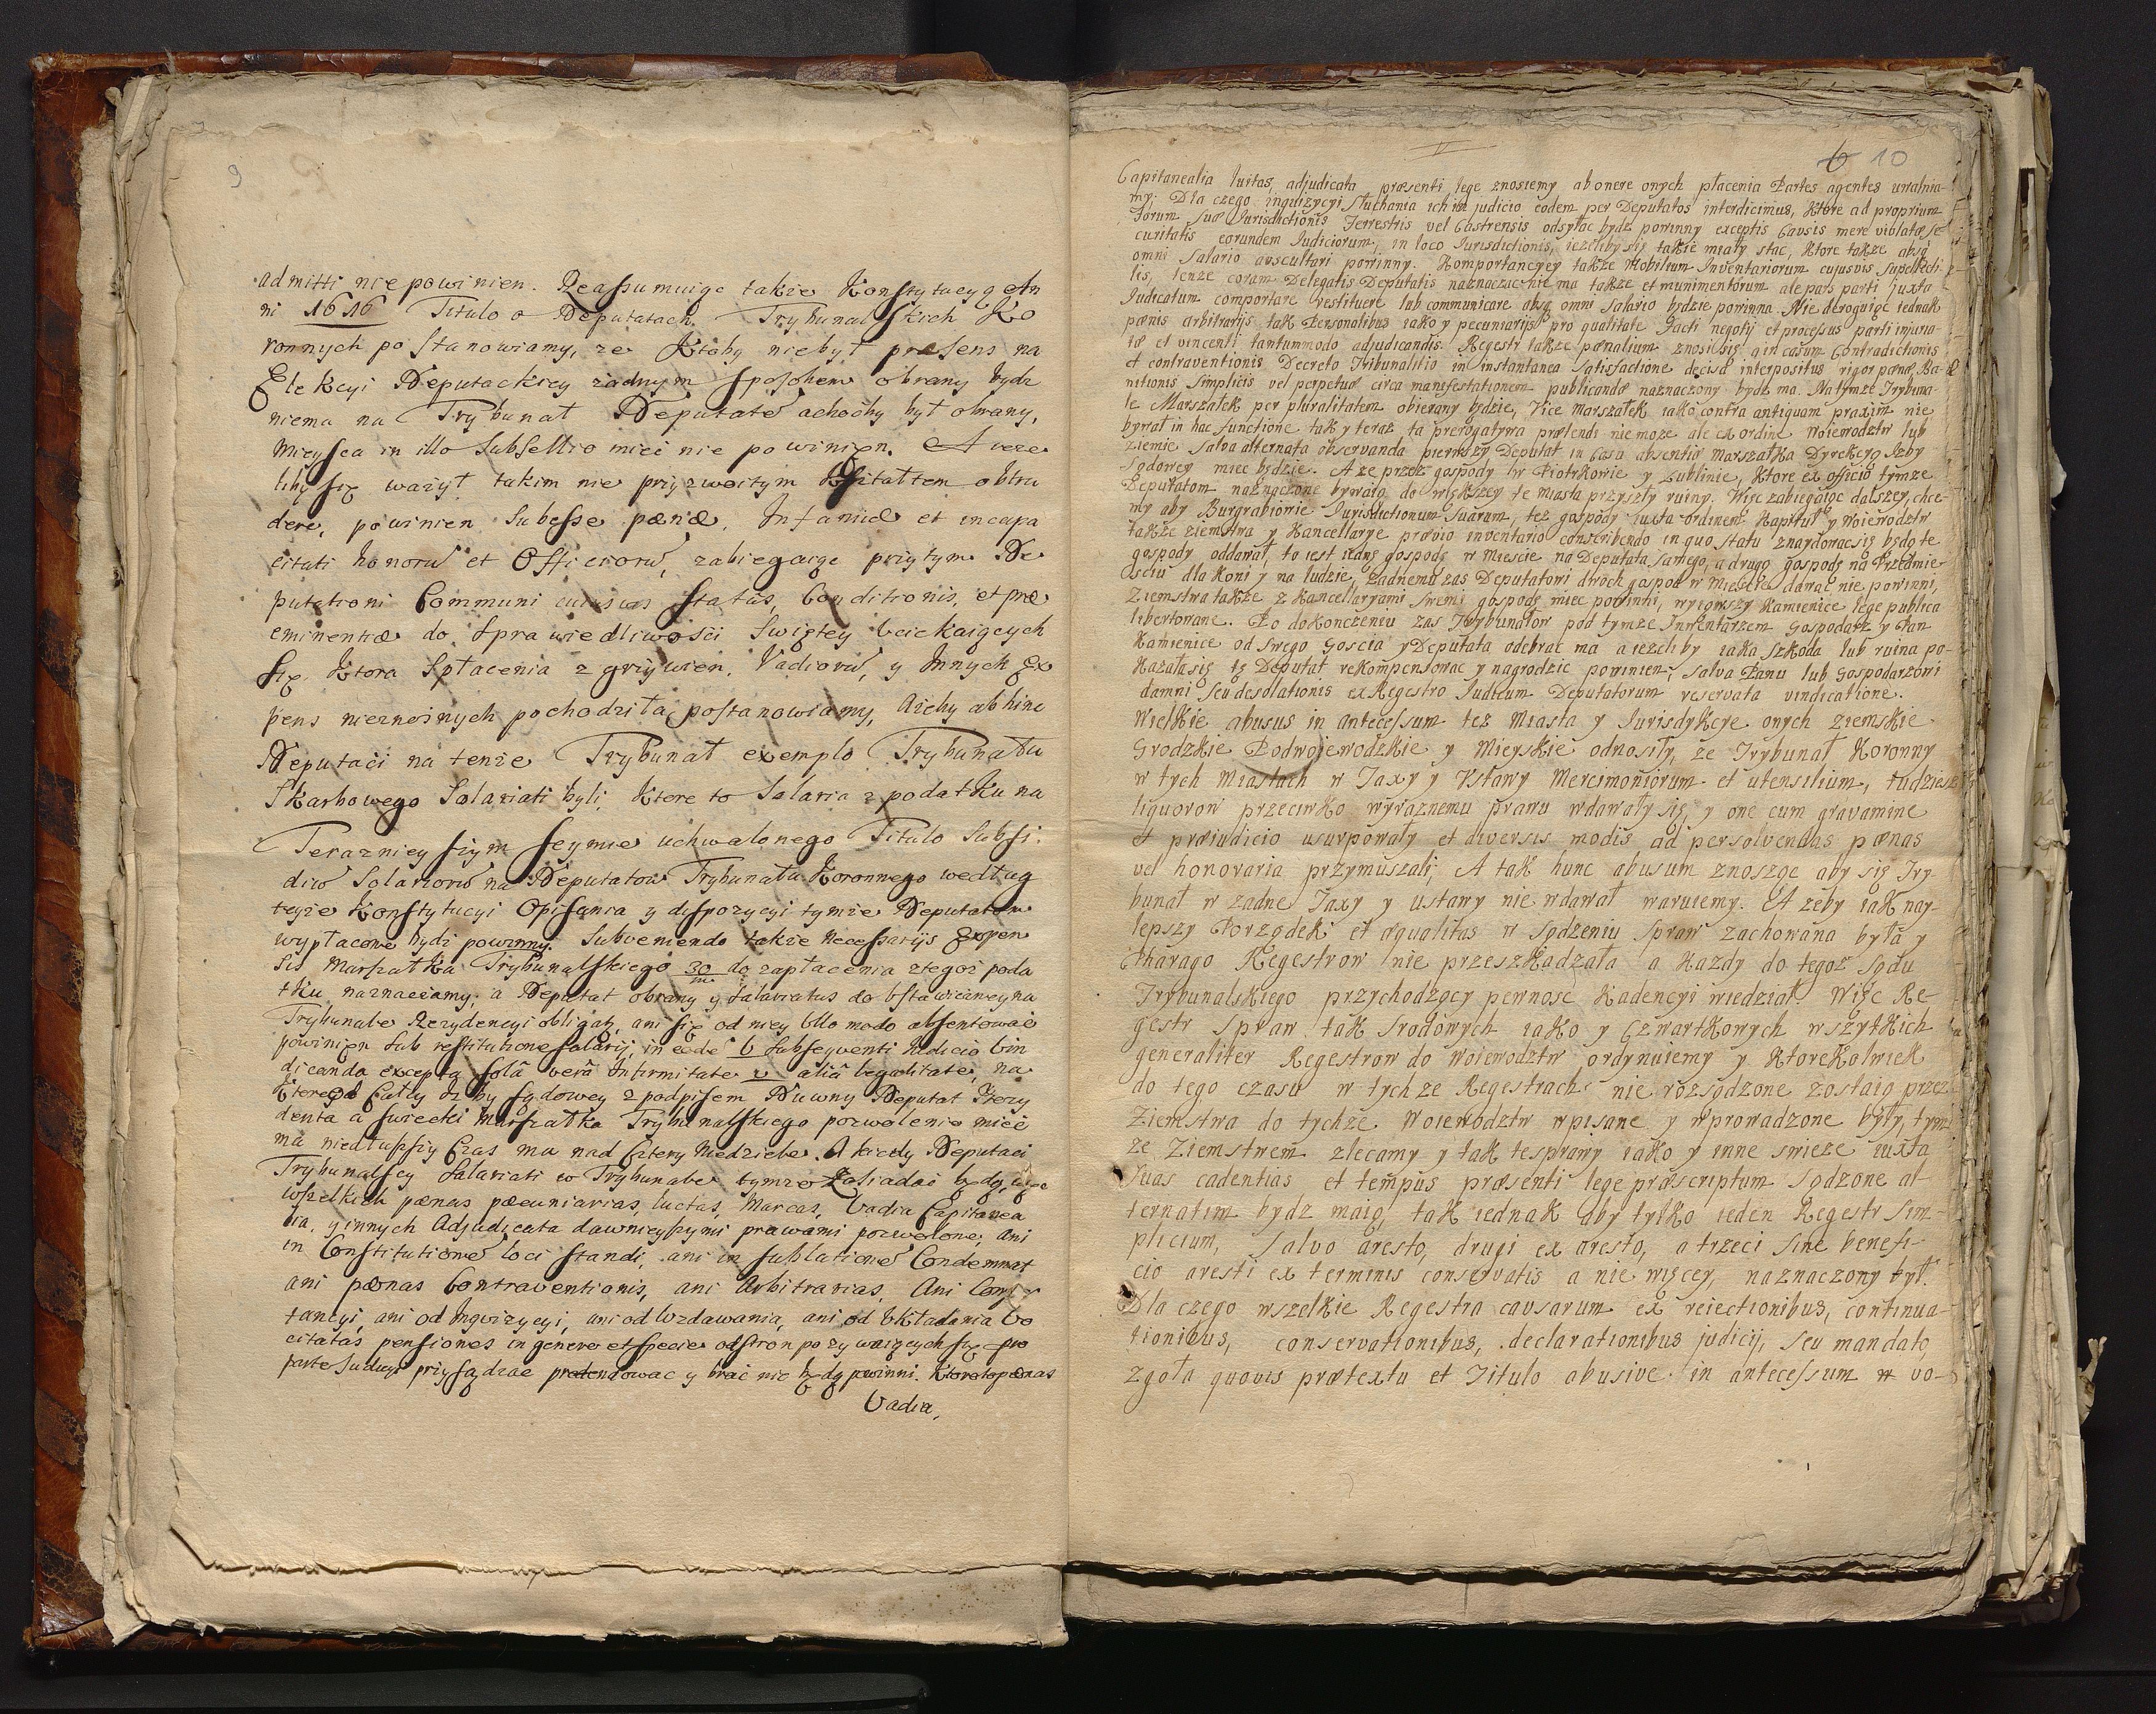 9
admitti nie powinien. Reassumuiąc także Konstytucyą An
ni 1616 Titulo o Deputatach Trybunalskich Ko
ronnych postanowiamy, że Ktoby niebył præsens na
Elekcyi Deputackiey żadnym sposobem obrany bydz
niema na Trybunał Deputatē achoćby był obrany,
Mieysca in illo Subsellio mieć nie powinien. A ieże
liby się ważył takim nie przyzwoitym Kształtem obtru
dere, powinien Subesse pænæ, Infamiæ et incapa
citati honorū et Officiorū, zabiegaiąc przytym De
putationi Communi cujusvis status, Conditionis, et præ
eminentiæ do Sprawiedliwości Swiętey Uciekaiących
się Ktora Spłacenia z grzywien, Vadiorū, y Innych Ex
pens nieznośnych pochodziła, postanowiamy, Ażeby abhinc
Deputaci na tenże Trybunał exemplo Trybunału
Skarbowego Salariati byli, Ktore to Salaria z podatku na
Teraznieyszym Seymie uchwalonego Titulo Subsi.
diū Salariorū na Deputatow Trybunału Koronnego według
teyże Konstytucyi Opisania y dyspozycyi tymże Deputatom
wypłacone bydź powinny. Subveniendo także Necessarijs Expen
sis Marszałka Trybunalskiego 30 m do zapłacenia ztegoż poda
tku naznaczamy, a Deputat obrany y Salariatus do Ustawiczney na
Trybunale Rezydencyi obligat, ani się od niey Ullo modo absentować
powinien Sub restitutione Salarij, in eodē V Subsequenti Iudicio Vin
dicanda excepta solâ verâ Infirmitate v aliâ legalitate, na
Ktore od Całey Izby sądowey z podpisem Duwny Deputat Prezy
denta a Swiecki Marszałka Trybunalskiego pozwolenie mieć
ma niedłuższy Czas ma nad Cztery Niedziele. A kiedy Deputaci
Trybunalscy Salariati w Trybunale tymże Zasiadać będą, więc
wszelkich pænas pæcuniarias, luctas, Marcas, Vadia Capitanea
lia, y innych Adjudicata dawnieyszymi prawami pozwolone, ani
in Constitutionē loci standi, ani in sublationē Condemnat
ani pænas Contraventionis, ani Arbitrarias, Ani Compor
tancyi, ani od Inqwizycyi, ani od Wzdawania, ani od Układania Vo
citatas pensiones in genere et specie odstron pozywaiących się pro
parte Sudueij przysądzać prætendować y brać nie będą powinni. Ktore to pænas
Vadia,
6 10
Capitanealia luitas, adjudicata præsenti lege znosiemy ab onere onych płacenia Partes agentes uwalnia-
my. Dla czego inquizycyi Słuchania ich in judicio eodem per Deputatos interdicimus, Ktore ad proprium
Forum suæ Jurisdictionis Terrestris vel Castrensis odsyłac bydz powinny exceptis Causis mere violatæ se
curitatis eorundem Judiciorum, in loco Jurisdictionis, iezeliby się takie miały stac, Ktore także absq
omni Salario auscultari powinny. Komportancyey także Mobilium Inventariorum cujusvis supellecti
lis, tenze coram Delegatis Deputatis naznaczac nie ma także et munimentorum ale pars parti juxta
Judicatum comportare restituere lub communicare absq omni Salario będzie powinna. Nie deroguiąc iednak
pænis arbitrarijs tak Personalibus iako y pecuniarijs pro qualitate Facti negotij et processus parti injuria-
tæ et vincenti tantummodo adjudicandis. Regestr także pænalium znosi się, a in casum Contradictionis
et contraventionis Decreto Tribunalitio in instantanea Satisfactione decisa interpositus rigor pænæ Ba-
nitionis Simplicis vel perpetuæ circa manifestationem publicandæ naznaczony bydz ma. Natymże Trybuna-
le Marszałek per pluralitatem obierany będzie, Vice Marszałek iako contra antiquam praxim nie
bywał in hac functione tak y teraz ta prerogatywa prætendi nie może ale ex ordine Woiewodztw lub
ziemie Salva alternata observanda pierwszy Deputat in Casu absentiæ Marszałka Dyrekcyą Izby
Sądowey miec będzie. A ze przez gospody w Piotrkowie y Lublinie, Ktore ex officio tymże
Deputatom naznaczone bywaią do większey te miasta przyszły ruiny. Więc zabiegaiąc dalszey, chce-
my aby Burgrabiowie Jurisdictionum Suarum, tez gospody iuxta ordinem Kapituł y Woiewodztw
także ziemstwa y Kancellarye prævio inventario conscribendo in quo Statu znaydowac się będą te
gospody oddawał, to iest iedną gospodę w Miescie na Deputata samego, a drugą gospodę na Przedmie-
ściu dla koni y na ludzie, żadnemu zas Deputatowi dwoch gospod w Miescie dawać nie powinni,
Ziemstwa także z Kancellaryami swemi gospodę miec powinni, wyiąwszy Kamienice lege publica
libertowane. Po dokonczeniu zas Trybunałow pod tymże Inwentarzem Gospodarz y Pan
Kamienice od swego Goscia y Deputata odebrac ma a iezeliby iaka szkoda lub ruina po-
kazała się tą Deputat rekompensowac y nagrodzic powinien; salva Panu lub Gospodarzowi
damni seu desolationis ex Regestro Judicum Deputatorum reservata vindicatione.
Wielkie abusus in antecessum też Miasta y Jurisdykcye onych ziemskie
Grodzkie Podwojewodzkie y Mieyskie odnosiły, że Trybunał Koronny
w tych Miastach w Taxy y Ustawy Mercimoniorum et utensilium, tudziesz
liquorow przeciwko wyraznemu prawu wdawały się, y one cum gravamine
et præiudicio usurpowały et diversis modis ad persolvendas pænas
vel honoraria przymuszali; A tak hunc abusum znosząc aby się Try-
bunał w żadne Taxy y ustawy nie wdawał waruiemy. A żeby iak nay-
lepszy Porządek et æqualitas w Sądzeniu Spraw zachowana była y
Charago Regestrow nie przeszkadzała a Kazdy do tegoż Sądu
Trybunalskiego przychodzący pewnosc Kadencyi wiedział. Więc Re-
gestr Spraw tak Srodowych iako y Czwartkowych wszytkich
generaliter Regestrow do Woiewodztw ordynuiemy y Ktorekolwiek
do tego czasu w tych ze Regestrach nie rozsądzone zostaią przez
Ziemstwa do tychże Woiewodztw wpisane y wprowadzone były, tym
że Ziemstwem zlecamy y tak te sprawy iako y inne swieże iuxta
suas cadentias et tempus præsenti lege præscriptum sądzone al-
ternatim bydz maią, tak iednak aby tylko ieden Regestr Sim-
plicium, Salvo aresto, drugi ex aresto, a trzeci sine benefi-
cio aresti ex terminis conservatis a nie więcey, naznaczony był.
Dla czego wszelkie Regestra causarum ex reiectionibus, continua-
tionibus, conservationibus, declarationibus judicij, seu mandato,
zgoła quovis prætextu et Titulo abusive in antecessum w vo-